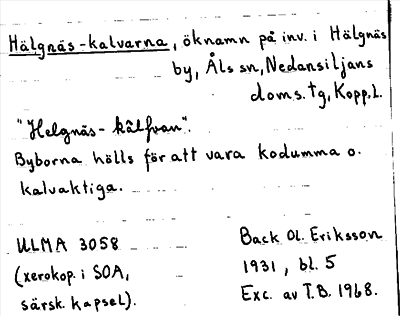 Hälgnäs-kalvarna, öknamn på inv. i Hälgnäs
by, Åls sn, Nedansiljans
doms. tg, Kopp. l.
"Helgnäs- kålfvan".
Byborna hölls för att vara kodumma o.
kalvaktiga.
ULMA 3058
(xerokop. i SOA,
särsk. kapsel).
Back Ol. Eriksson
1931, bl. 5
Exc. av T.B. 1968.